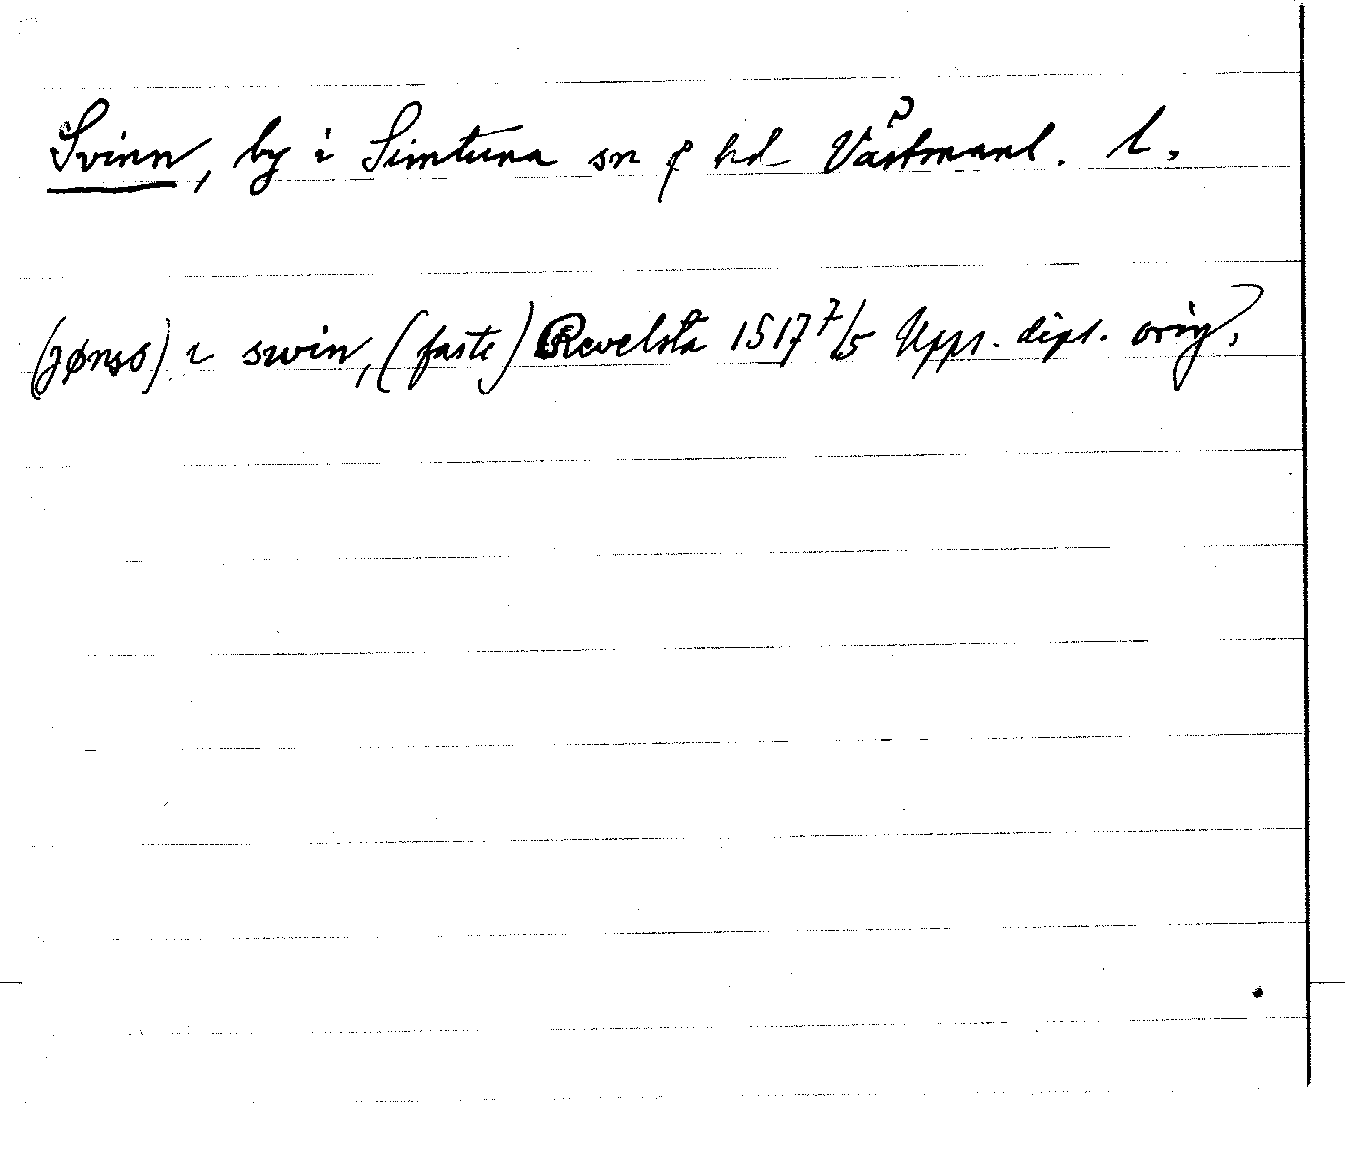 Svinn, by i Simtuna sn o hd Västmanl. l.
(jønso) i swin, (faste) Revelsta 1517 7/5 Upps. dipl. orig.